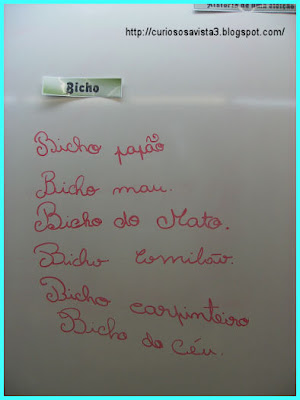 http://curiososavista3.blogspot.com/
Bicho
Bicho papão
Bicho mau.
Bicho do Mato.
Bicho comilão.
Bicho carpinteiro
Bicho do céu.